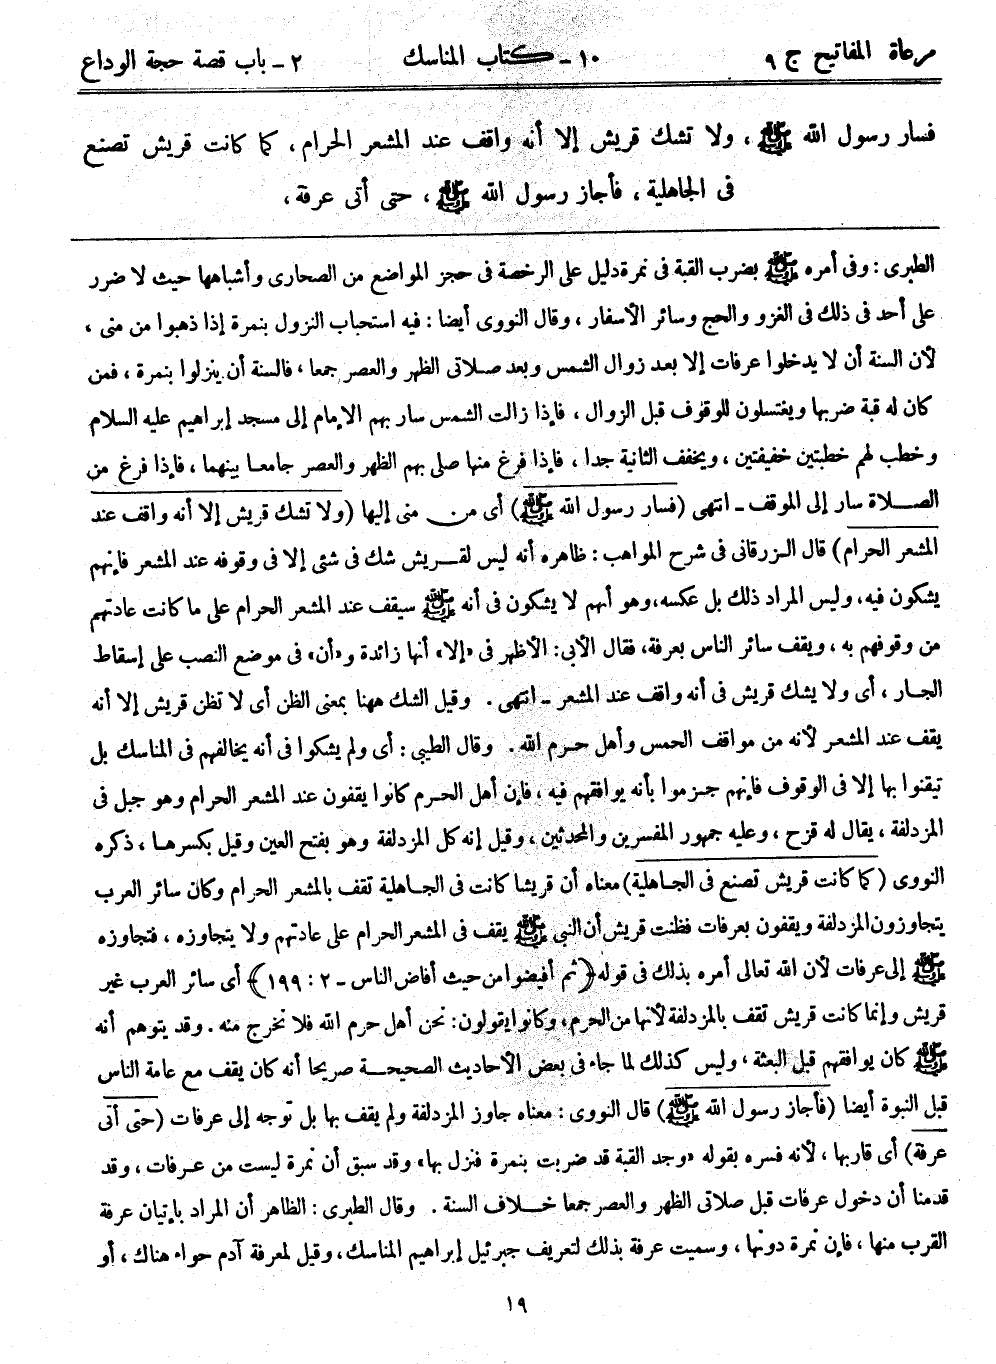 مرعاة المفاتيح ج ٩ ١٠ ـ كتاب المناسك ٢ ـ باب قصة حجة الوداع
فسار رسول الله ﷺ، ولا تشك قريش إلا أنه واقف عند المشعر الحرام، كما كانت قريش تصنع
فى الجاهلية، فأجاز رسول الله ﷺ، حتى أتى عرفة،
الطبرى: وفى أمره ﷺ بضرب القبة فى نمرة دليل على الرخصة فى حجز المواضع من الصحارى وأشباهها حيث لا ضرر
على أحد فى ذلك فى الغزو والحج وسائر الأسفار، وقال النووى أيضا: فيه استحباب النزول بنمرة إذا ذهبوا من منى،
لأن السنة أن لا يدخلوا عرفات إلا بعد زوال الشمس وبعد صلاتى الظهر والعصر جمعا، فالسنة أن ينزلوا بنمرة، فمن
كان له قبة ضربها ويغتسلون للوقوف قبل الزوال، فإذا زالت الشمس سار بهم الإمام إلى مسجد إبراهيم عليه السلام
وخطب لهم خطبتين خفيفتين، ويخفف الثانية جدا، فإذا فرغ منها صلى بهم الظهر والعصر جامعا بينهما، فإذا فرغ من
الصلاة سار إلى الموقف ـ انتهى (فسار رسول الله ﷺ) أى من منى إليها (ولا تشك قريش إلا أنه واقف عند
المشعر الحرام) قال الزرقانى فى شرح المواهب: ظاهره أنه ليس لقريش شك فى شئى إلا فى وقوفه عند المشعر فإنهم
يشكون فيه، وليس المراد ذلك بل عكسه، وهو أنهم لا يشكون فى أنه ﷺ سيقف عند المشعر الحرام على ما كانت عادتهم
من وقوفهم به، ويقف سائر الناس بعرفة، فقال الأبى: الأظهر فى «إلا» أنها زائدة و«أن» فى موضع النصب على إسقاط
الجار، أى ولا يشك قريش فى أنه واقف عند المشعر ـ انتهى. وقيل الشك ههنا بمعنى الظن أى لا تظن قريش إلا أنه
يقف عند المشعر لأنه من مواقف الحمس وأهل حرم الله. وقال الطيبى: أى ولم يشكوا فى أنه يخالفهم فى المناسك بل
تيقنوا بها إلا فى الوقوف فإنهم جزموا بأنه يوافقهم فيه، فإن أهل الحرم كانوا يقفون عند المشعر الحرام وهو جبل فى
المزدلفة، يقال له قزح، وعليه جمهور المفسرين والمحدثين، وقيل إنه كل المزدلفة وهو بفتح العين وقيل بكسرها، ذكره
النووى (كما كانت قريش تصنع فى الجاهلية) معناه أن قريشا كانت فى الجاهلية تقف بالمشعر الحرام وكان سائر العرب
يتجاوزون المزدلفة ويقفون بعرفات فظنت قريش أن النبى ﷺ يقف فى المشعر الحرام على عادتهم ولا يتجاوزه، فتجاوزه
ﷺ إلى عرفات لأن الله تعالى أمره بذلك فى قوله ﴿ثم أفيضوا من حيث أفاض الناس ـ ٢ : ١٩٩﴾ أى سائر العرب غير
قريش وإنما كانت قريش تقف بالمزدلفة لأنها من الحرم، وكانوا يقولون: نحن أهل حرم الله فلا نخرج منه. وقد يتوهم أنه
ﷺ كان يوافقهم قبل البعثة، وليس كذلك لما جاء فى بعض الأحاديث الصحيحة صريحا أنه كان يقف مع عامة الناس
قبل النبوة أيضا (فأجاز رسول الله ﷺ) قال النووى: معناه جاوز المزدلفة ولم يقف بها بل توجه إلى عرفات (حتى أتى
عرفة) أى قاربها، لأنه فسره بقوله «وجد القبة قد ضربت بنمرة فنزل بها» وقد سبق أن نمرة ليست من عرفات، وقد
قدمنا أن دخول عرفات قبل صلاتى الظهر والعصر جمعا خلاف السنة. وقال الطبرى: الظاهر أن المراد بإتيان عرفة
القرب منها، فإن نمرة دونها، وسميت عرفة بذلك لتعريف جبرئيل إبراهيم المناسك، وقيل لمعرفة آدم حواء هناك، أو
١٩